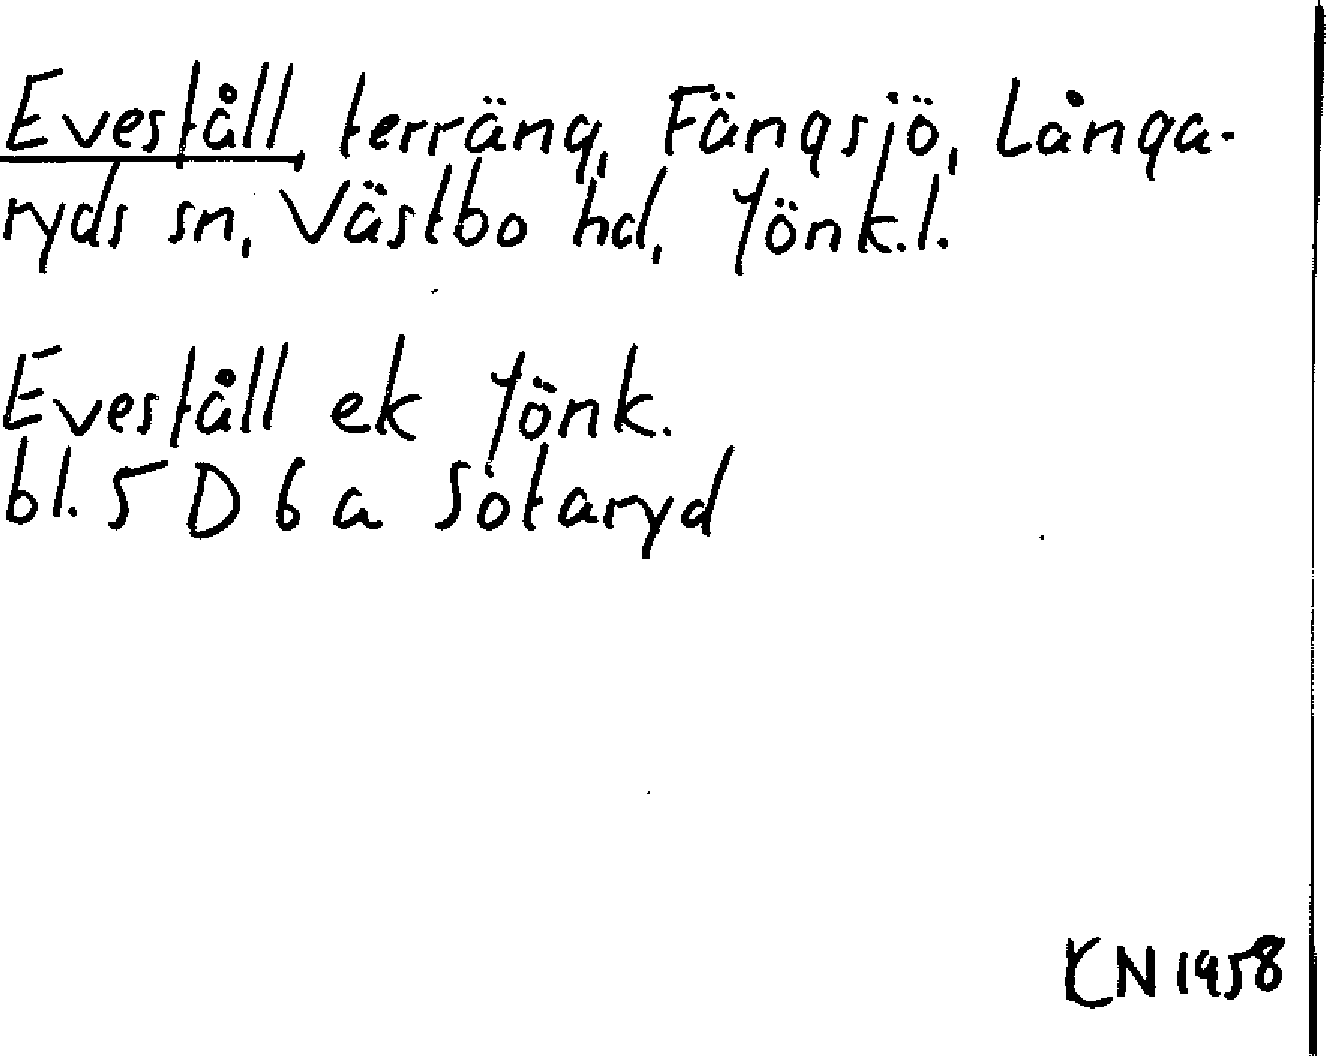 Eveståll, terräng, Fängsjö, Långa-
ryds sn, Västbo hd, Jönk.l.
Eveståll ek Jönk.
bl. 5 D 6 a Sötaryd
KN 1958